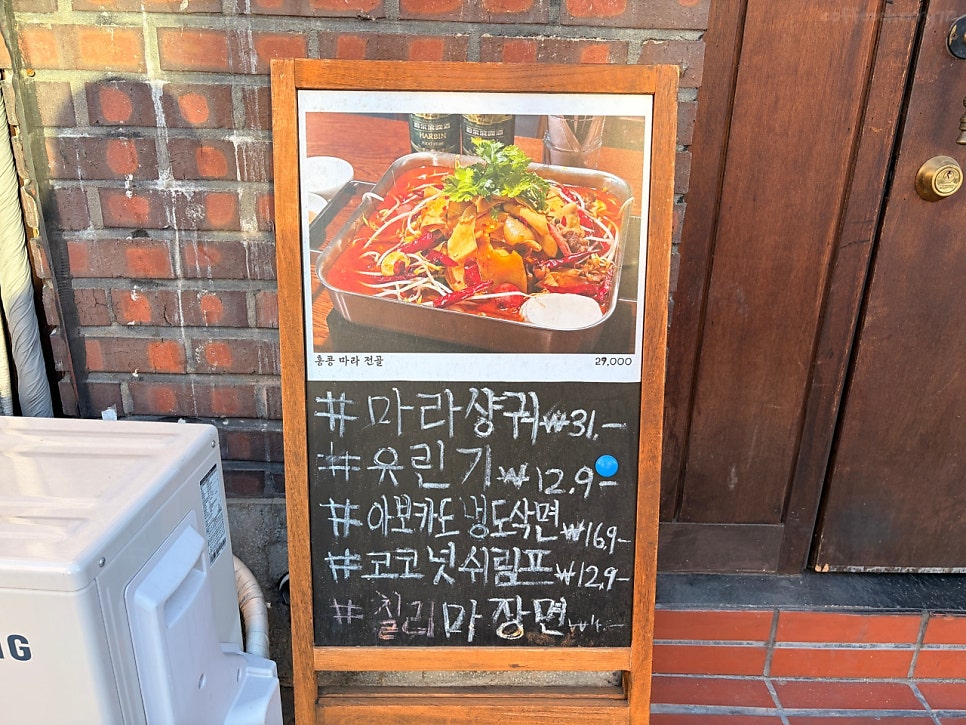 HARBIN
홍콩 마라 전골 29,000
#마라샹궈₩31.-
#유린기₩12.9-
#아보카도냉도삭면₩16.9-
#코코넛쉬림프₩12.9-
#칠리마장면
NG